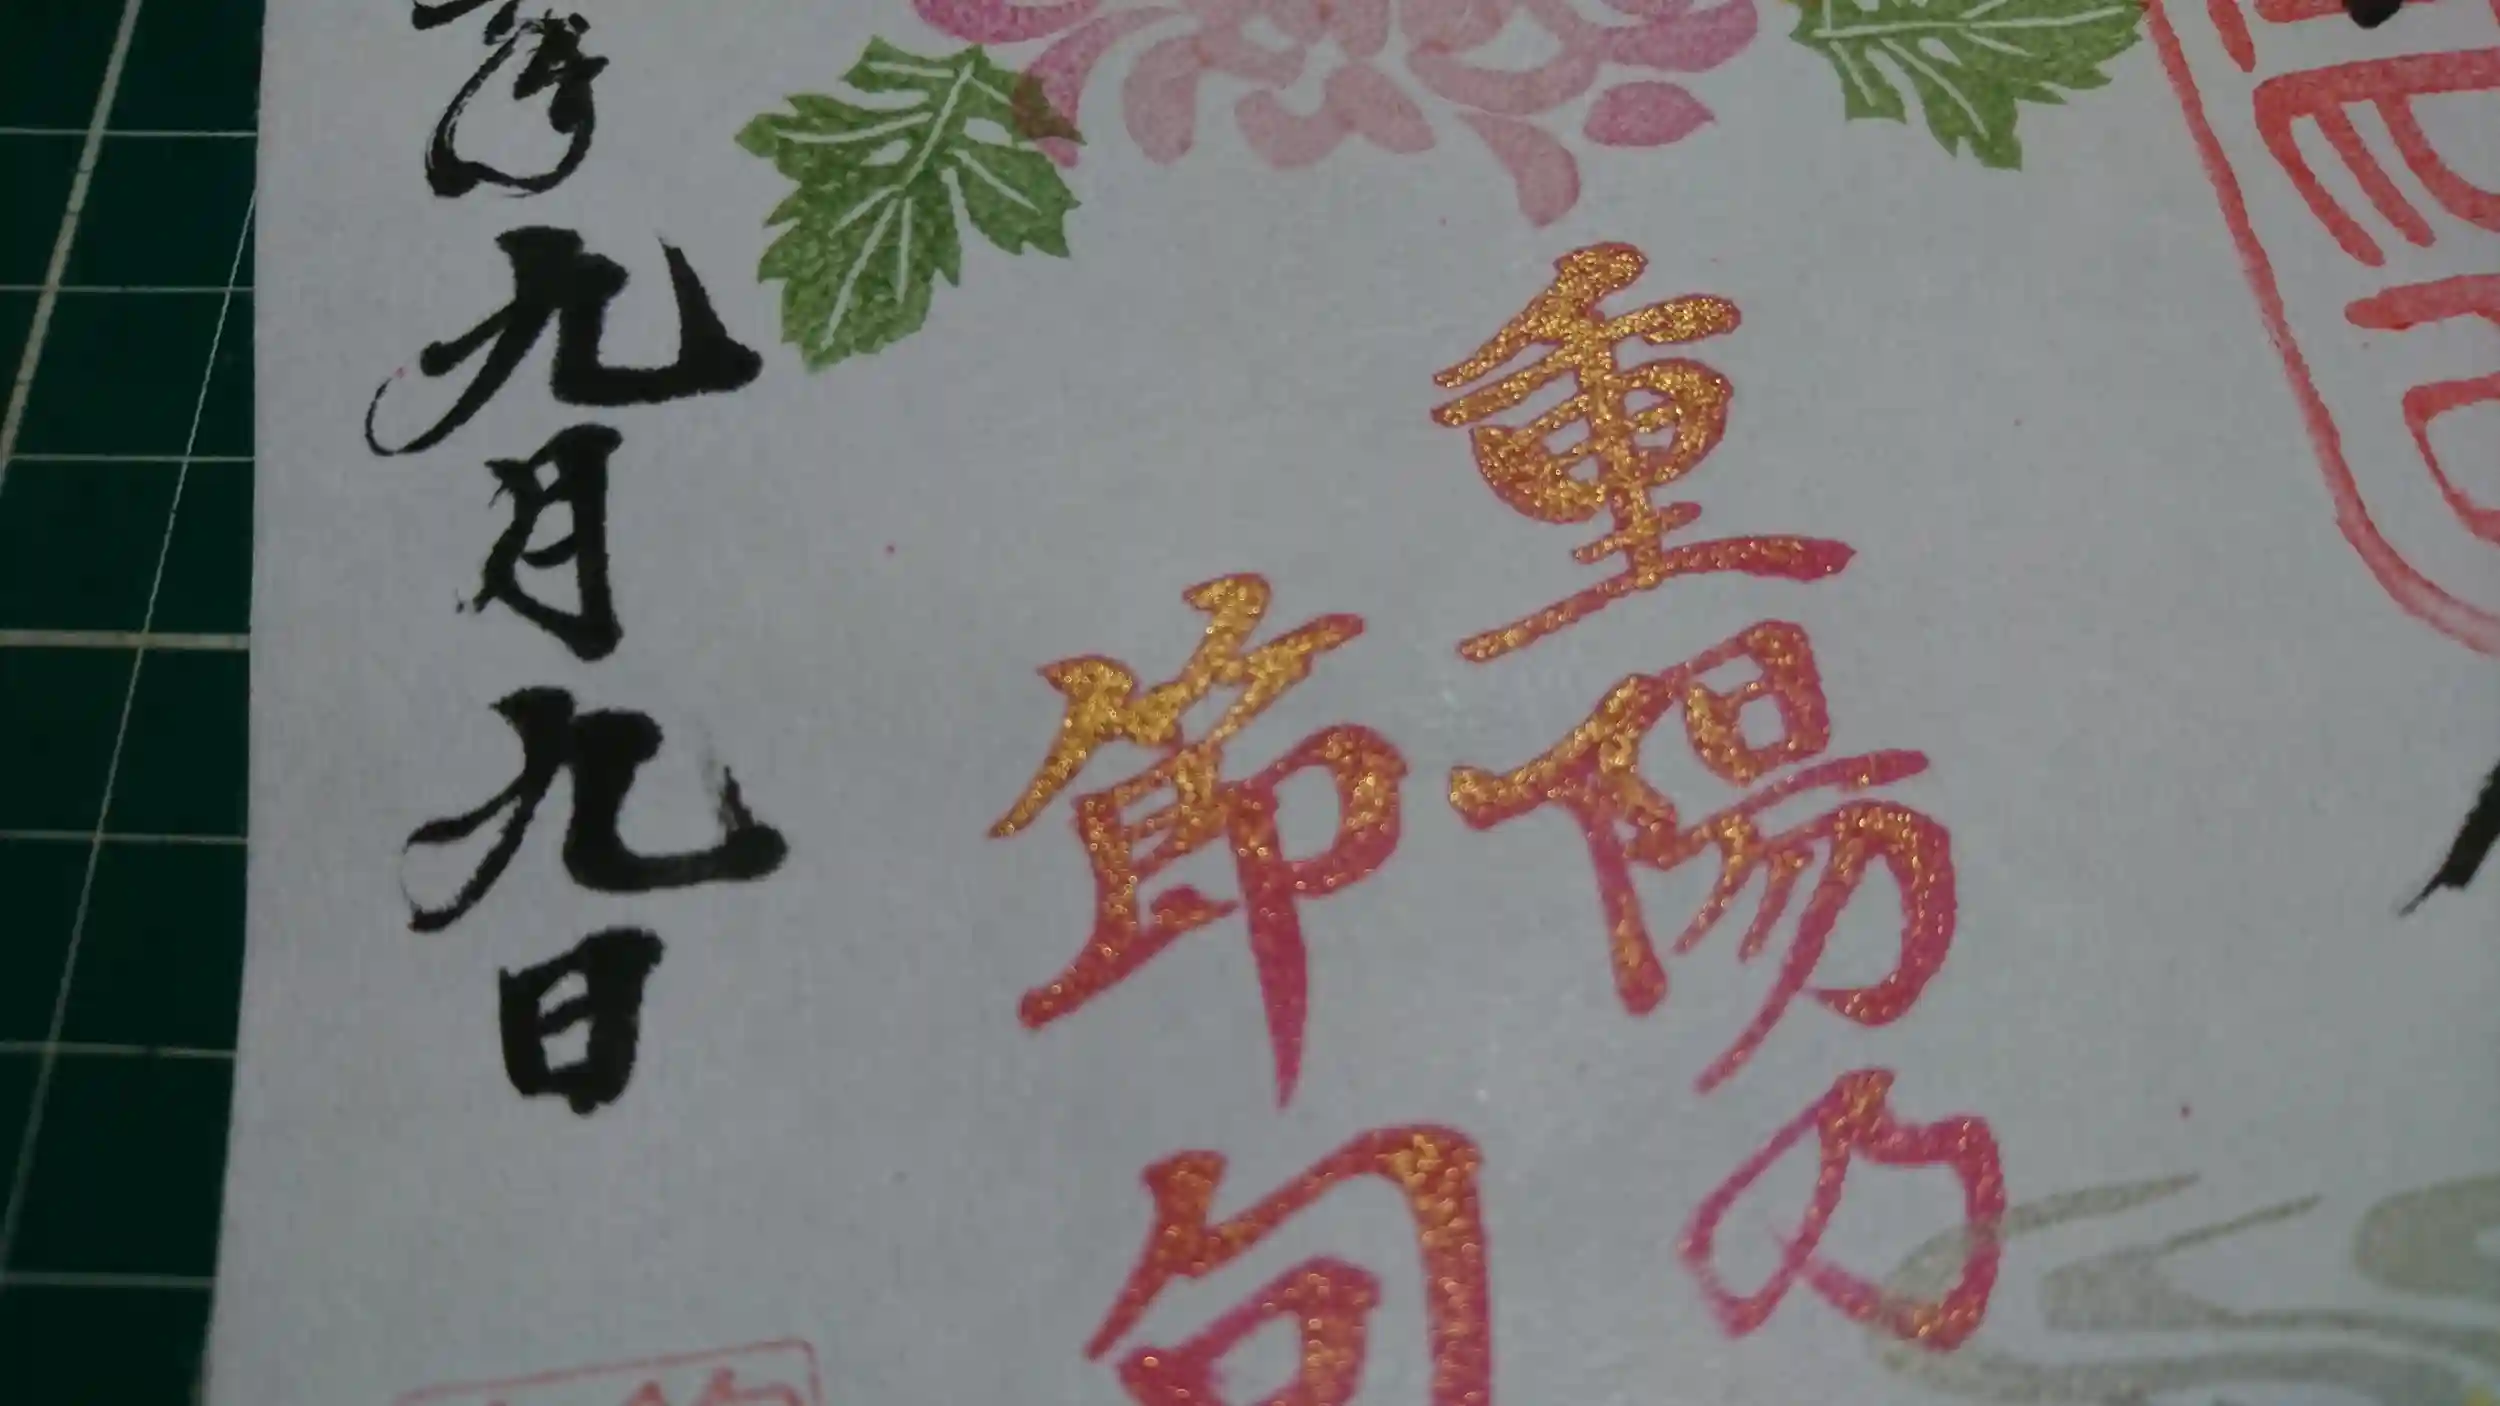 重陽の
節句
年九月九日